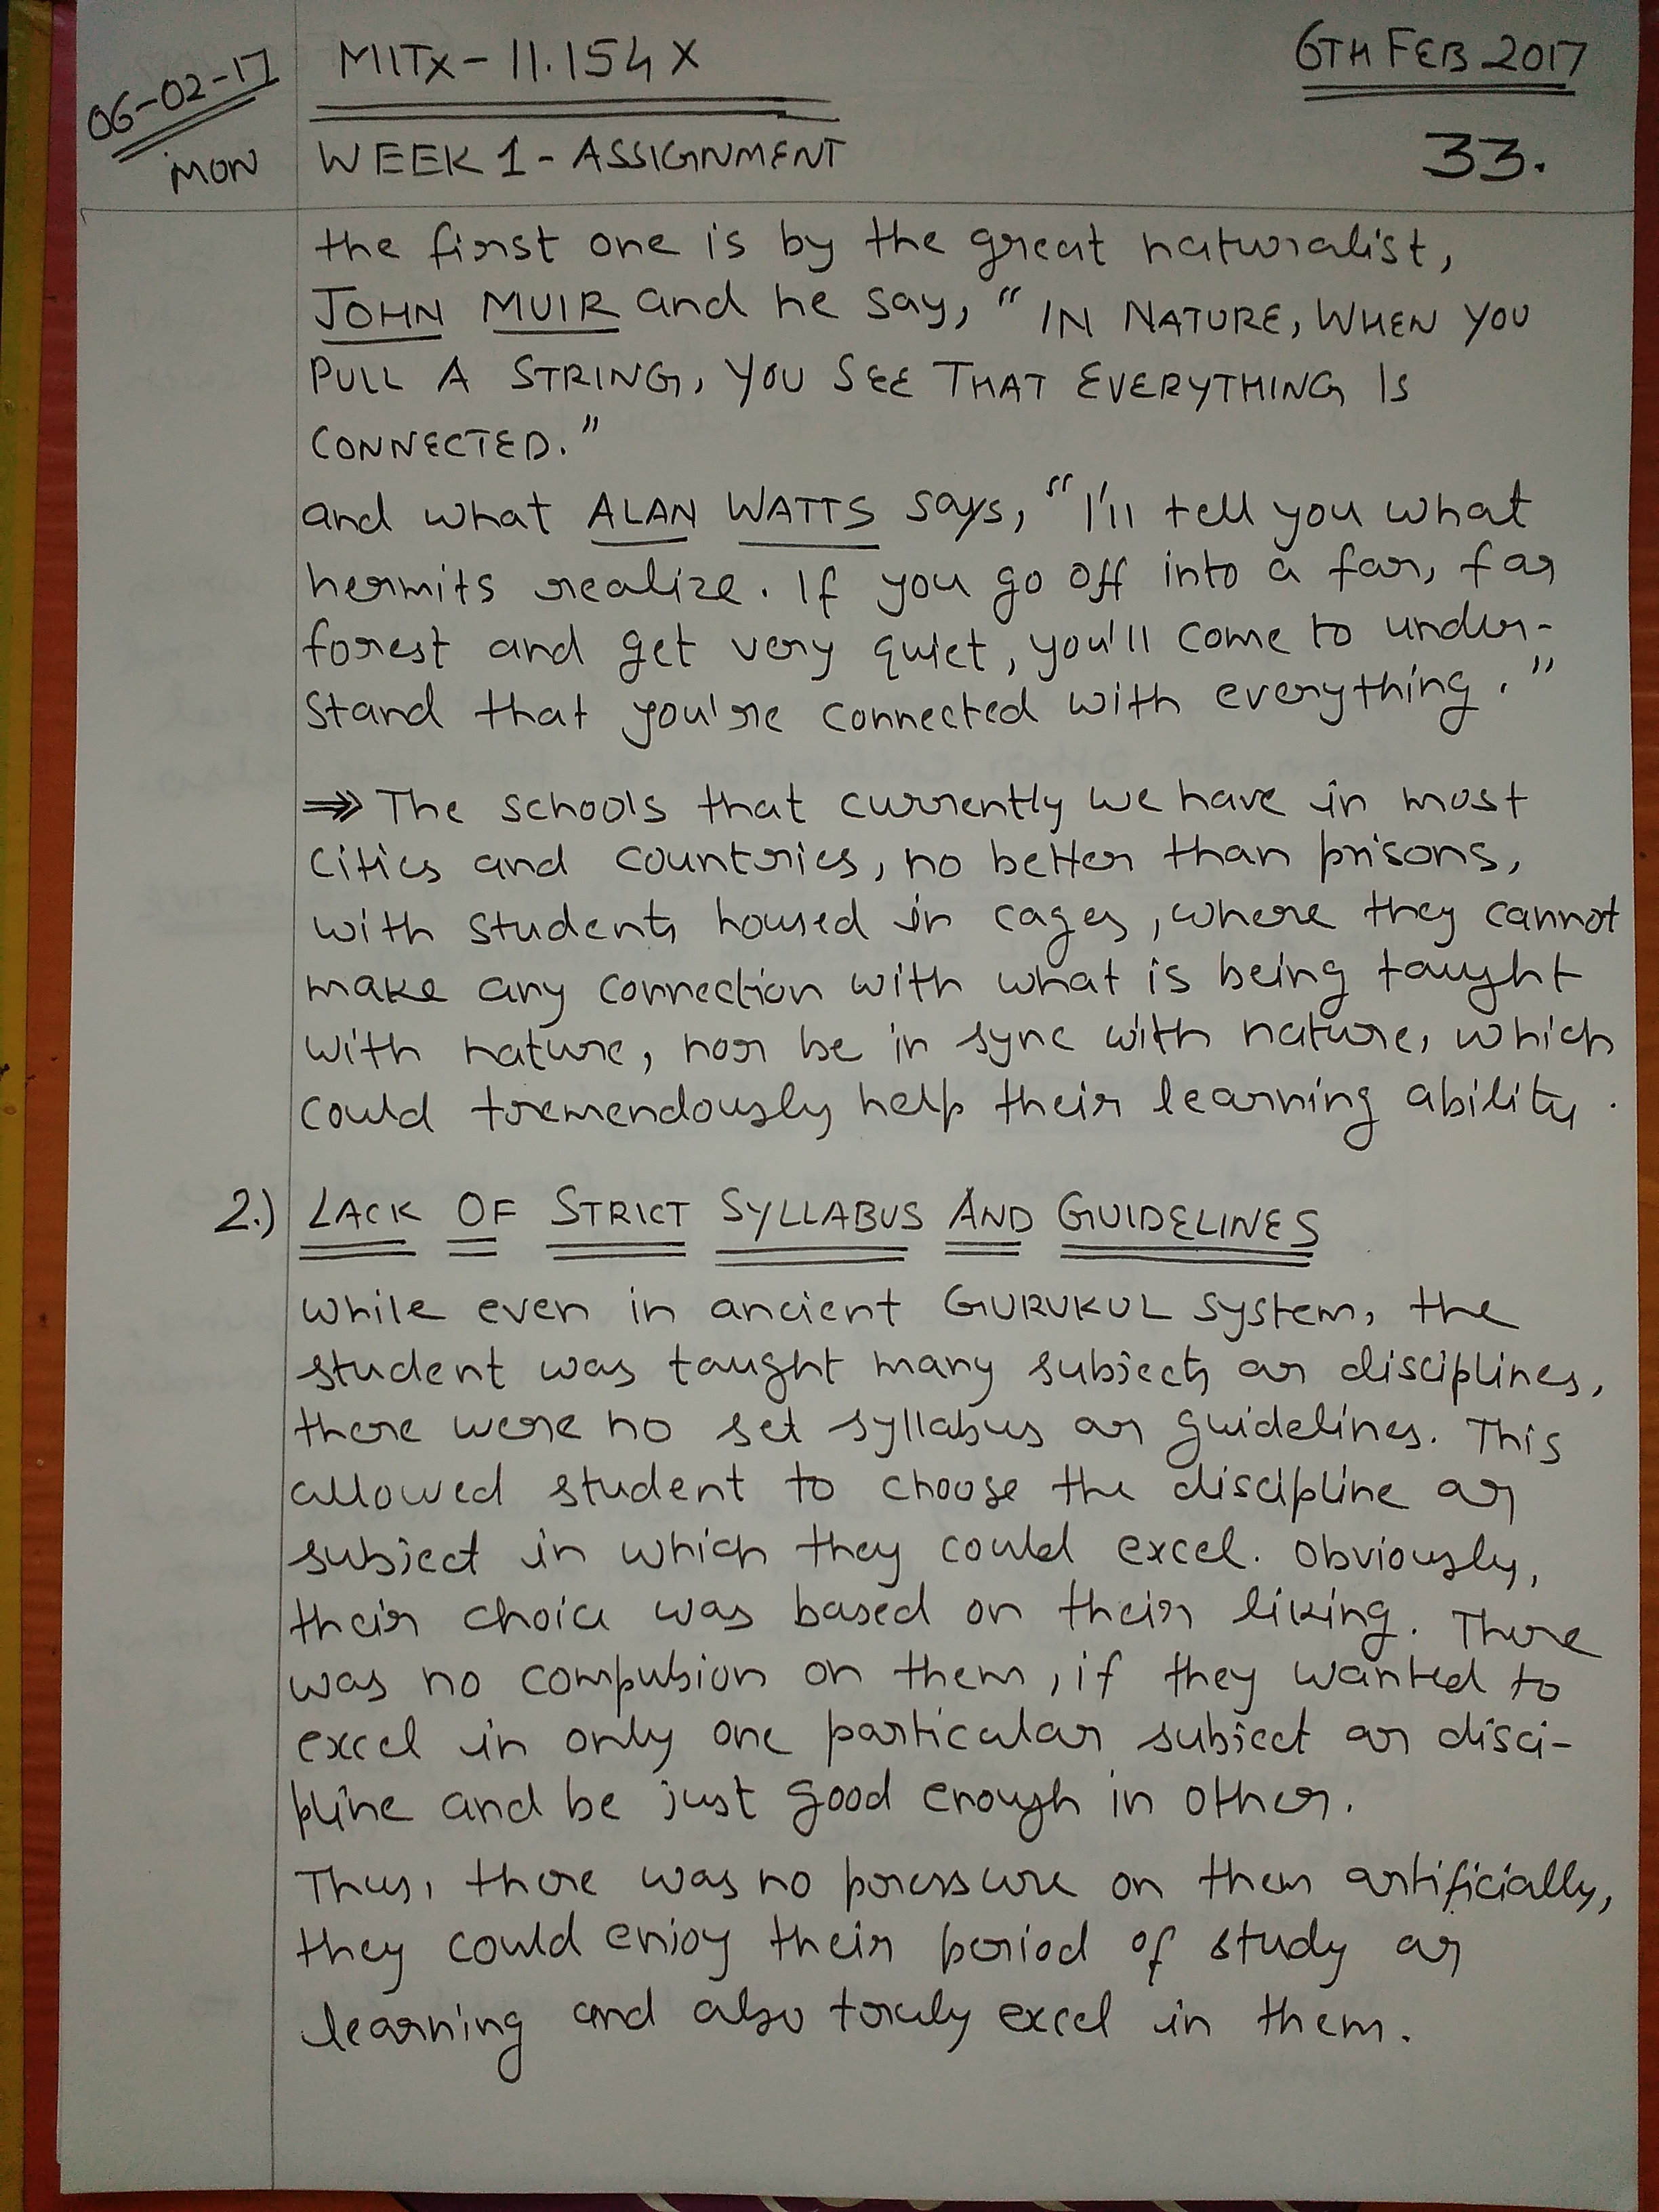 06-02-17
MON
MITx - 11.154x
6TH FEB 2017
WEEK 1 - ASSIGNMENT
33.
the first one is by the great naturalist,
JOHN MUIR and he say, "IN NATURE, WHEN YOU
PULL A STRING, YOU SEE THAT EVERYTHING IS
CONNECTED."
and what ALAN WATTS says, "I'll tell you what
hermits realize. If you go off into a far, far
forest and get very quiet, you'll come to under-
stand that you're connected with everything."
⇒> The schools that currently we have in most
cities and countries, no better than prisons,
with students housed in cages, where they cannot
make any connection with what is being taught
with nature, nor be in sync with nature, which
could tremendously help their learning ability.
2.) LACK OF STRICT SYLLABUS AND GUIDELINES
while even in ancient GURUKUL system, the
student was taught many subjects or disciplines,
there were no set syllabus or guidelines. This
allowed student to choose the discipline or
subject in which they could excel. Obviously,
their choice was based on their liking. There
was no compulsion on them, if they wanted to
excel in only one particular subject or disci-
pline and be just good enough in other.
Thus, there was no pressure on them artificially,
they could enjoy their period of study or
learning and also truly excel in them.